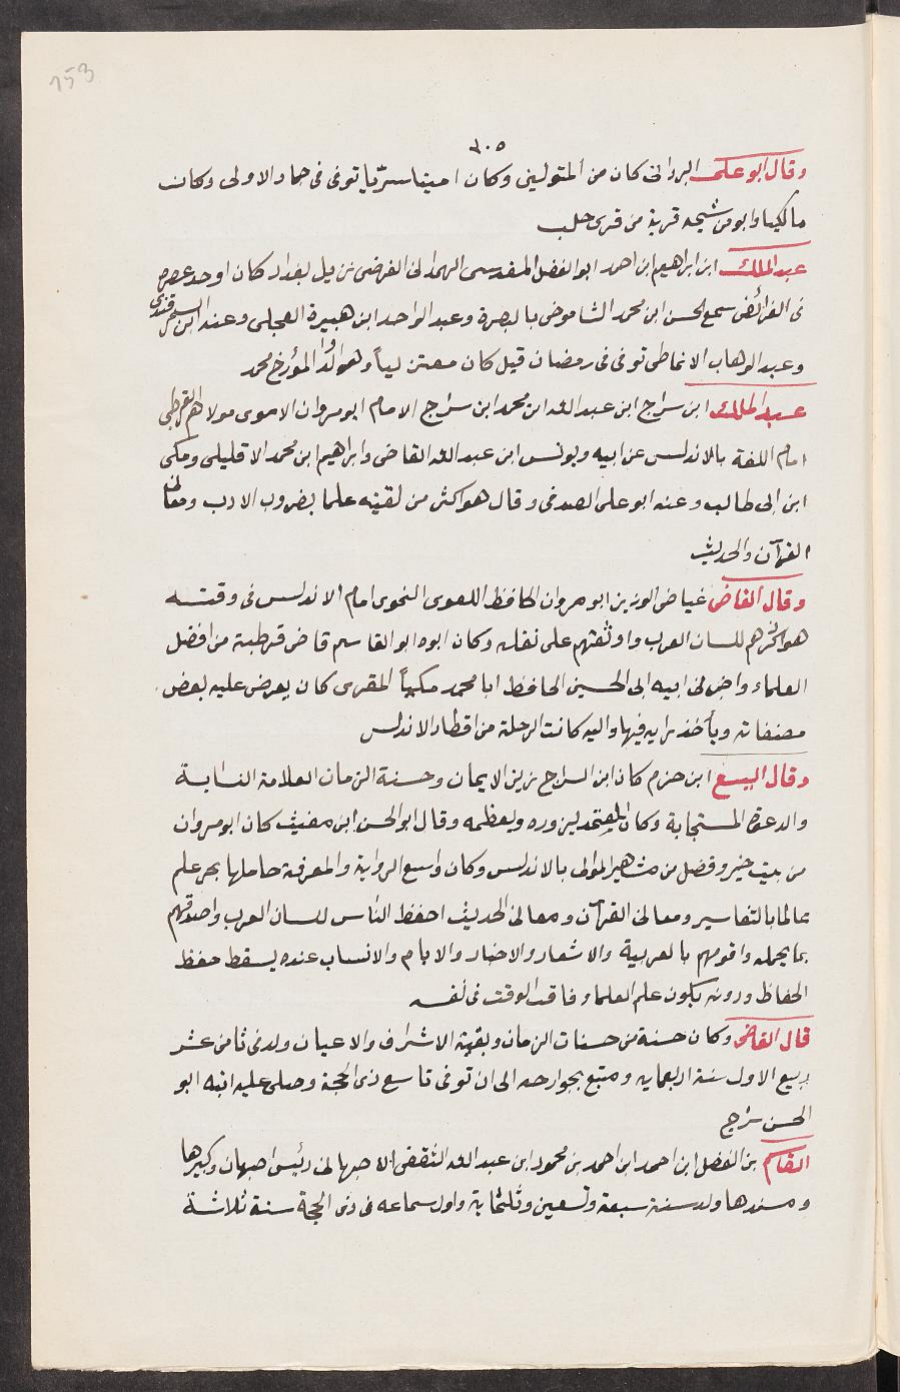 153
٣٠٥
وقال ابو على البردانى كان من المتولين وكان امينا سريا توفى فى جماد الاولى وكان
مالكيا وابوه من شيحه قرية من قرى حلب
عبد الملك ابن ابراهيم ابن احمد ابو الفضل المقدسى الهمدانى الفرضى نزيل بغداد كان اوحد عصره
فى الفرائض سمع الحسن ابن محمد الشاموخى بالبصرة وعبد الواحد ابن هبيرة العجلى وعنه ابن السمرقندى
وعبد الوهاب الانماطى توفى فى رمضان قيل كان معتزليا وهو والد المؤرخ محمد
عبد الملك ابن سراج ابن عبد الله ابن محمد ابن سراج الامام ابو مروان الاموى مولاهم القرطبى
امام اللغة بالاندلس عن ابيه ويونس ابن عبد الله القاضى وابراهيم ابن محمد الاقليلى ومكى
ابن ابى طالب وعنه ابو على الصدفى وقال هو اكثر من لقيته علما بضروب الادب ومعانى
القرآن والحديث
وقال القاضى عياض الوزير ابو مروان الحافظ اللغوى النحوى امام الاندلس فى وقته
هو اكثرهم للسان العرب واوثقهم على نقله وكان ابوه ابو القاسم قاضى قرطبة من افضل
العلماء واخبرنى ابيه ابى الحسين الحافظ ابا محمد مكيا المقرى كان يعرض عليه بعض
مصنفاته ويأخذ برايه فيها واليه كانت الرحلة من اقطار الاندلس
وقال اليسع ابن حزم كان ابن السراج من زين الايمان وحسنة الزمان العلامة النسابة
والدعوة المستجابة وكان المعتمد يزوره ويعظمه وقال ابو الحسن ابن مغيث كان ابو مروان
من بيت خير وفضل من مشاهير الموالى بالاندلس وكان واسع الرواية والمعرفة حاملها بحر علم
عالما بالتفاسير ومعانى القرآن ومعانى الحديث احفظ الناس للسان العرب واصدقهم
بما يحمله واقومهم بالعربية والاشعار والاخبار والايام والانساب عنده يسقط حفظ
الحفاظ ودونه يكون علم العلماء فاق الوقت فى نفسه
قال القاضى وكان حسنة من حسنات الزمان وبقية الاشراف والاعيان ولد فى ثامن عشر
ربيع الاول سنة اربعمايه ومتع بجوارحه الى ان توفى تاسع ذى الحجة وصلى عليه ابنه ابو
الحسن سراج
القاسم بن الفضل ابن احمد ابن احمد بن محمود ابن عبد الله الثقفى الاصبهانى رئيس اصبهان وكبيرها
ومسندها ولد سنة سبعة وتسعين وثلثماية واول سماعه فى ذى الحجة سنة ثلاثة